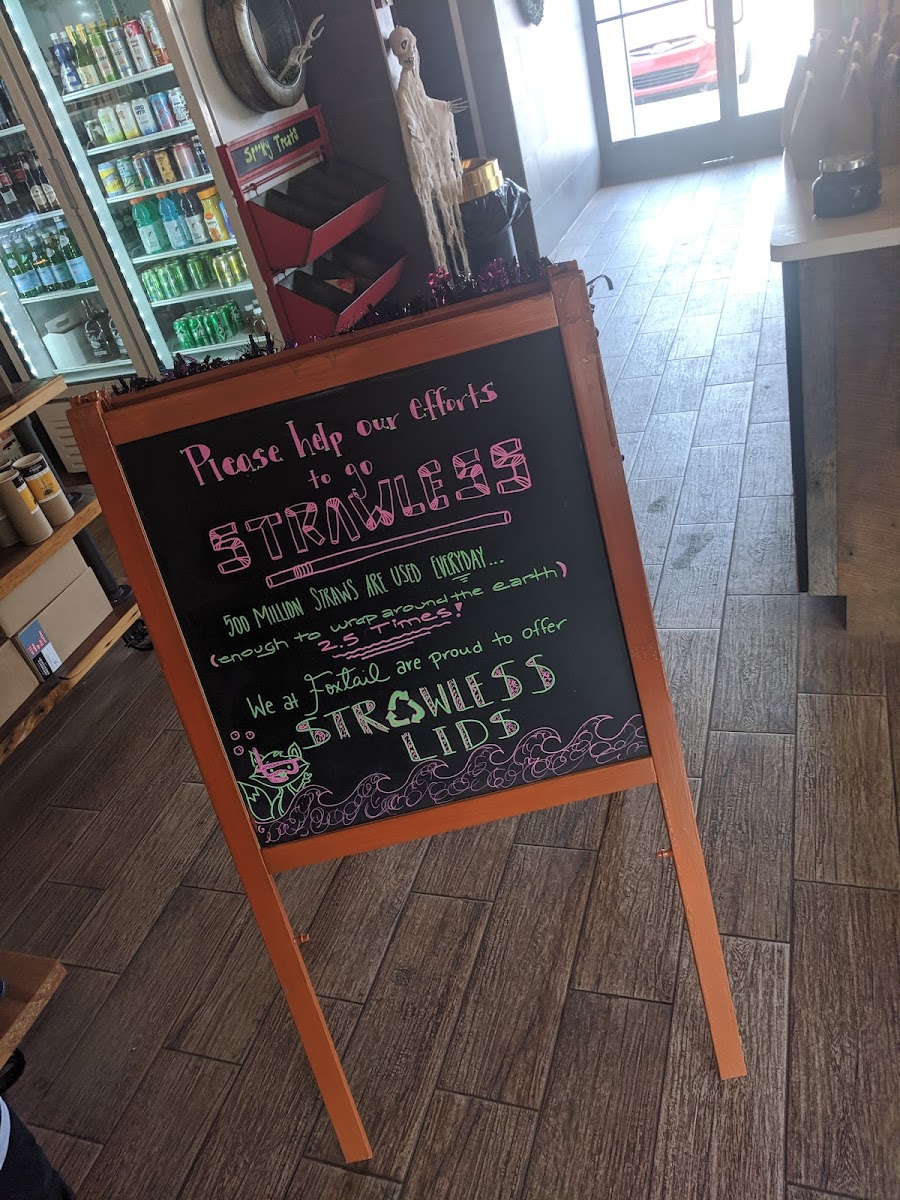 Spooky Treats
Please help our efforts
to go
STRAWLESS
500 MILLION STRAWS ARE USED EVERYDAY...
(enough to wrap around the earth)
2.5 Times!
We at Foxtail are proud to offer
STRAWLESS
LIDS